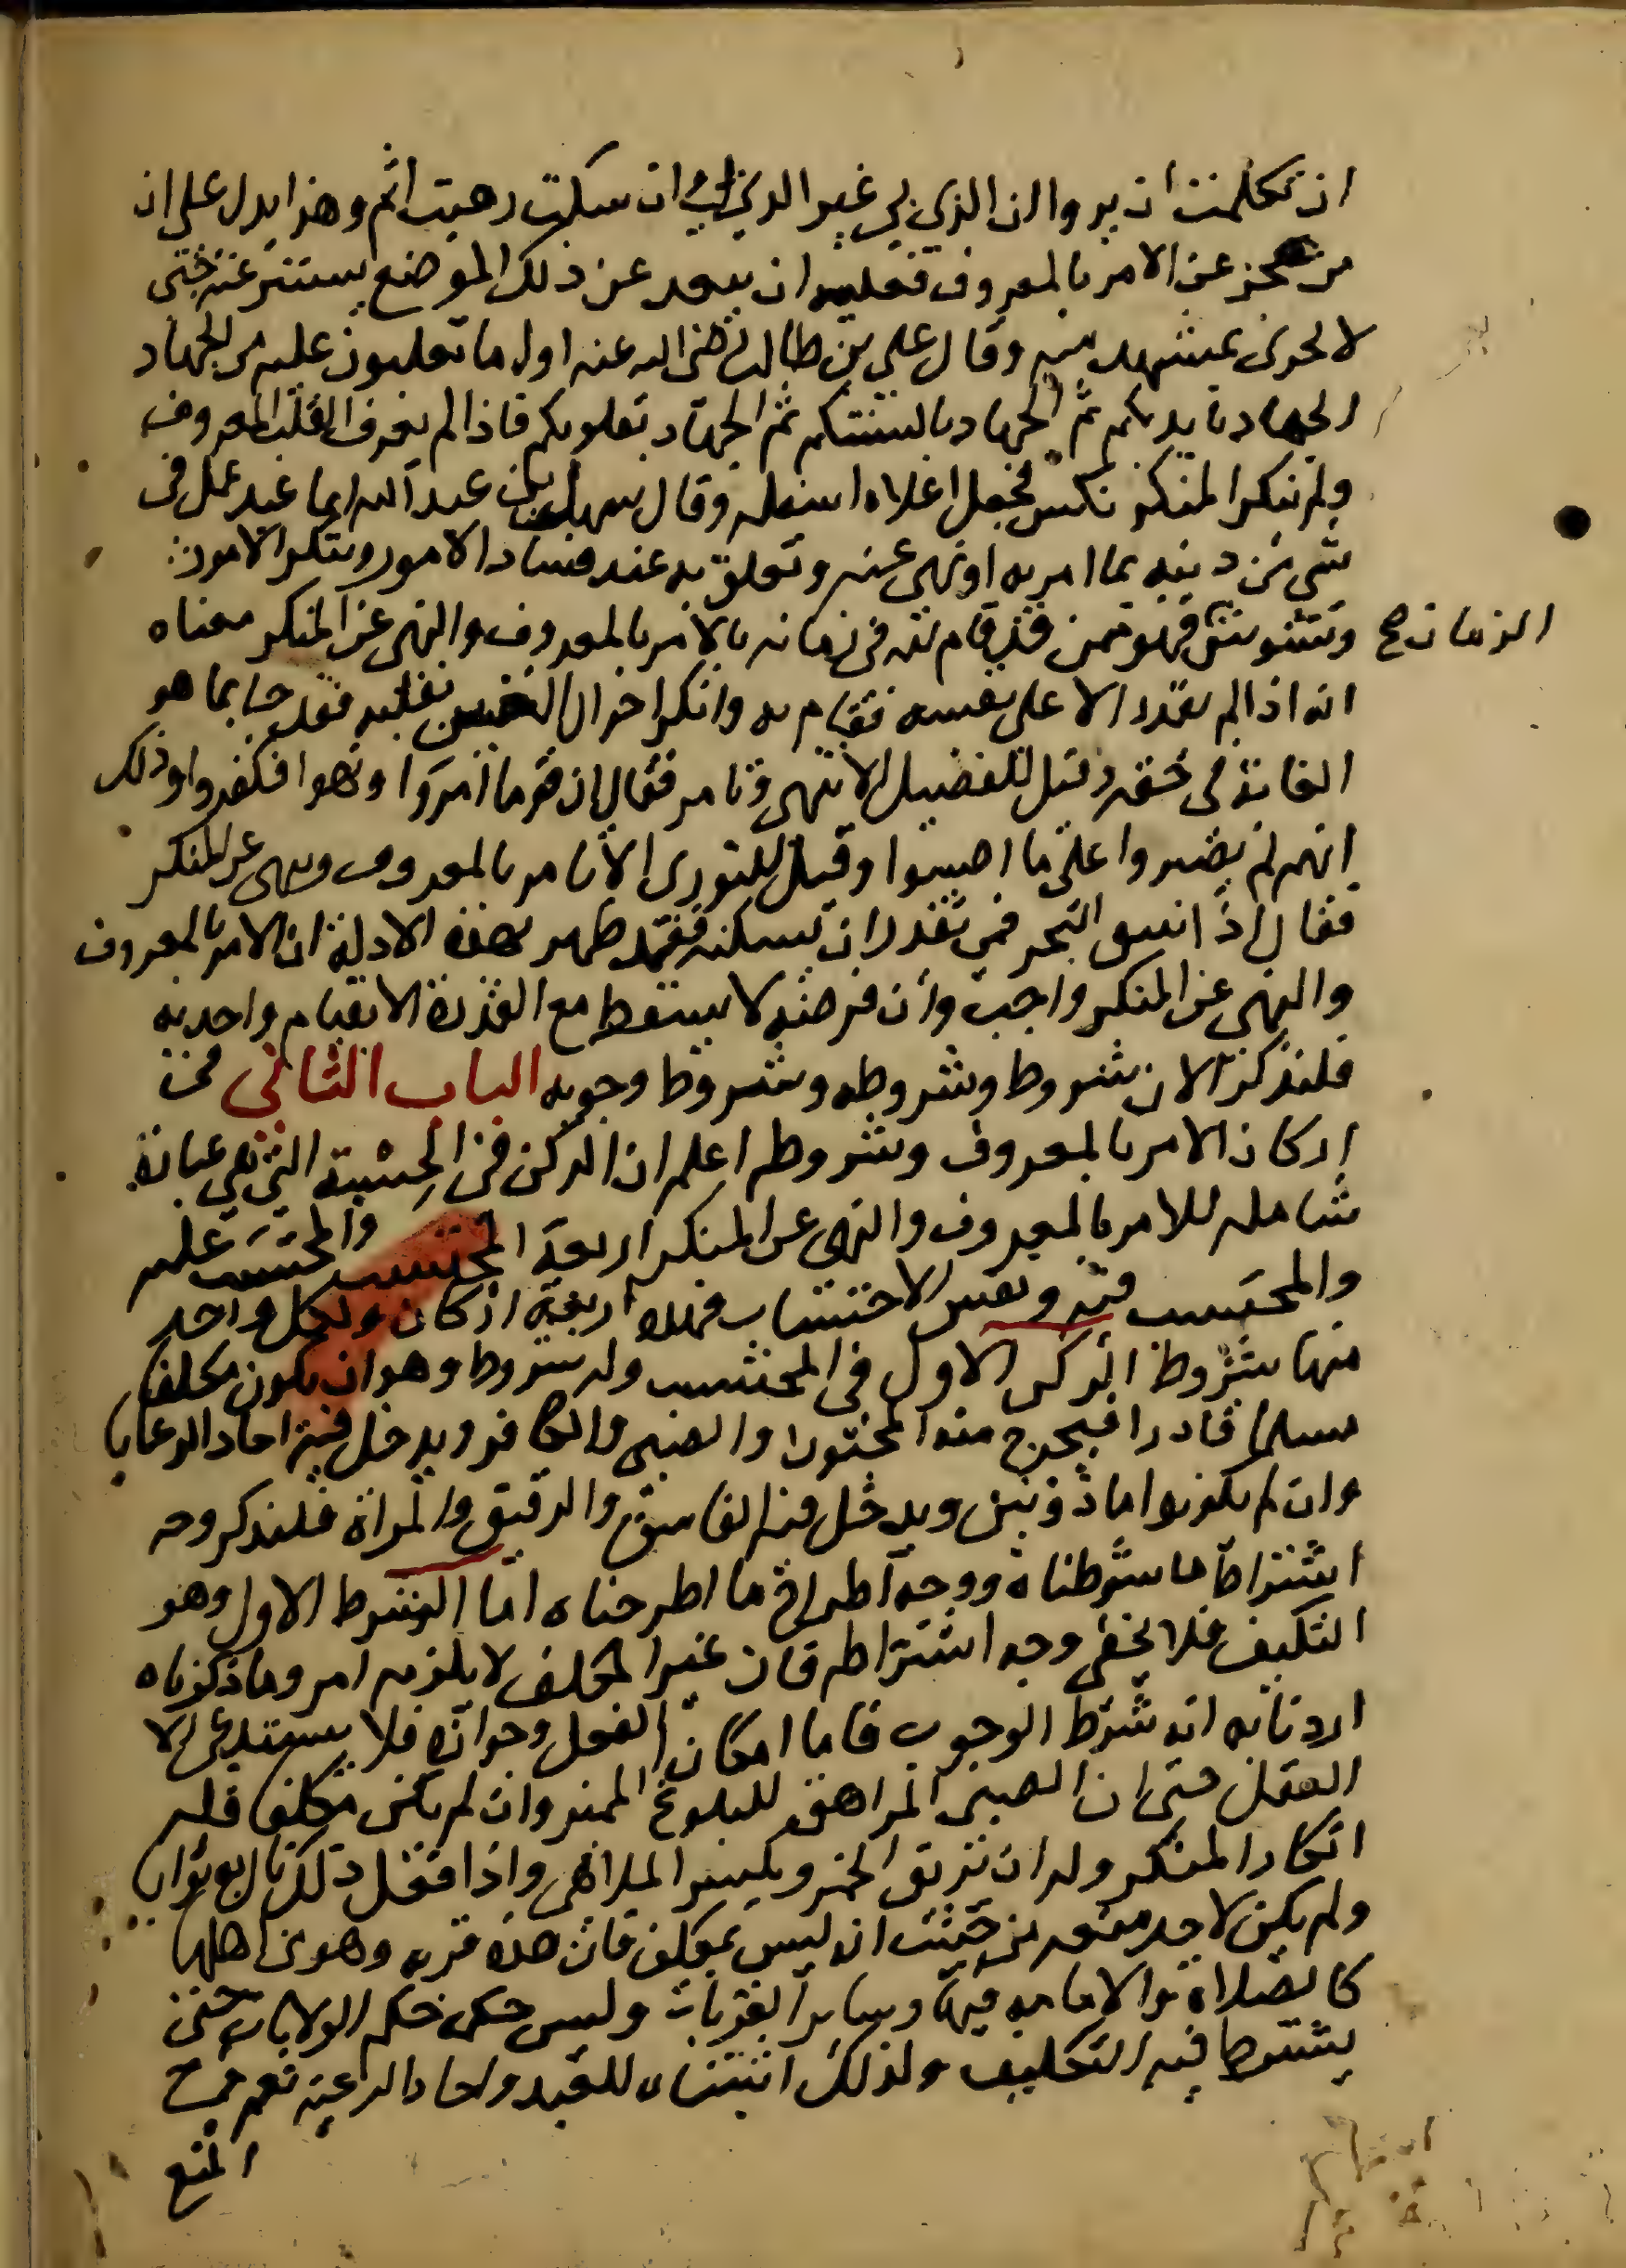 ان تكلمت ان يروا ان الذي بي غير الذي بي وان سكت رهبت اثم وهذا يدل على ان
من عجز عن الامر بالمعروف فعليه ان يبعد عن ذلك الموضع يستتر عنه حتى
لا يجرى بمشهد منه وقال علي بن طالب رضى الله عنه اول ما تغلبون عليه من الجهاد
الجهاد بايديكم ثم الجهاد بالسنتكم ثم الجهاد بقلوبكم فاذا لم يعرف القلب المعروف
ولم ينكر المنكر نكس فجعل اعلاه اسفله وقال سهل بن عبد الله ايما عبد عمل فى
شي من دينه بما امر به او نهى عنه وتعلق به عند فساد الامور وتنكر الامور
وتشوش الزمان صح فهو ممن قد قام لله فى زمانه بالامر بالمعروف والنهى عن المنكر معناه
انه اذا لم يقدر الا على نفسه فقام به وانكر احوال الغير بقلبه فقد جا بما هو
الغاية فى حقه وقيل للفضيل الا تنهى وتامر فقال ان قوما امروا ونهوا فكفروا وذلك
انهم لم يصبروا على ما اصيبوا وقيل للثورى الا تامر بالمعروف وتنهى عن المنكر
فقال اذا انبثق البحر فمن يقدر ان يسكنه فقد ظهر بهذه الادلة ان الامر بالمعروف
والنهى عن المنكر واجب وان فرضه لا يسقط مع القدرة الا بقيام واحد به
فلنذكر الان شروط وشروطه وشروط وجوبه الباب الثانى فى
اركان الامر بالمعروف وشروطه اعلم ان الركن فى الحسبة التى هي عبارة
شامله للامر بالمعروف والنهى عن المنكر اربعة المحتسب والمحتسب عليه
والمحتسب فيه ونفس الاحتساب فهذه اربعة اركان ولكل واحد
منها شروط الركن الاول فى المحتسب وله شروط وهو ان يكون مكلفا
مسلما قادرا فيخرج منه المجنون والصبى والكافر ويدخل فيه احاد الرعايا
وان لم يكونوا ماذونين ويدخل فيه الفاسق والرقيق والمراة فلنذكر وجه
اشتراط ما شرطناه ووجه اطراح ما اطرحناه اما الشرط الاول وهو
التكليف فلا يخفى وجه اشتراطه فان غير المكلف لا يلزمه امر وما ذكرناه
اردنا به انه شرط الوجوب فاما امكان الفعل وجوازه فلا يستدعى الا
العقل حتى ان الصبى المراهق للبلوغ المميز وان لم يكن مكلفا فله
انكار المنكر وله ان يريق الخمر ويكسر الملاهى واذا فعل ذلك نال به ثوابا
ولم يكن لاحد منعه من حيث انه ليس بمكلف فان هذه قربه وهو من اهلها
كالصلاة والامامه فيها وساير القربات وليس حكمه حكم الولايات حتى
يشترط فيه التكليف ولذلك اثبتناه للعبد واحاد الرعية نعم فى
المنع